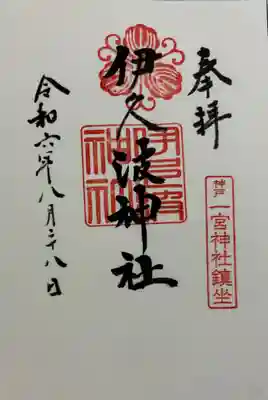 奉拝
神戸 一宮神社鎮坐
伊久波神社
令和六年八月二十八日